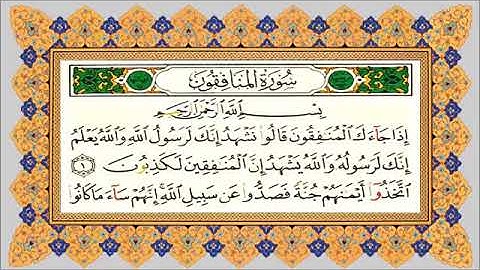 سُورَةُ المُنَافِقُونَ
بِسْمِ اللَّهِ الرَّحْمَٰنِ الرَّحِيمِ
إِذَا جَآءَكَ الْمُنَافِقُونَ قَالُوا نَشْهَدُ إِنَّكَ لَرَسُولُ اللَّهِ وَاللَّهُ يَعْلَمُ
إِنَّكَ لَرَسُولُهُ وَاللَّهُ يَشْهَدُ إِنَّ الْمُنَافِقِينَ لَكَاذِبُونَ ١
اتَّخَذُوا أَيْمَانَهُمْ جُنَّةً فَصَدُّوا عَن سَبِيلِ اللَّهِ إِنَّهُمْ سَآءَ مَا كَانُوا